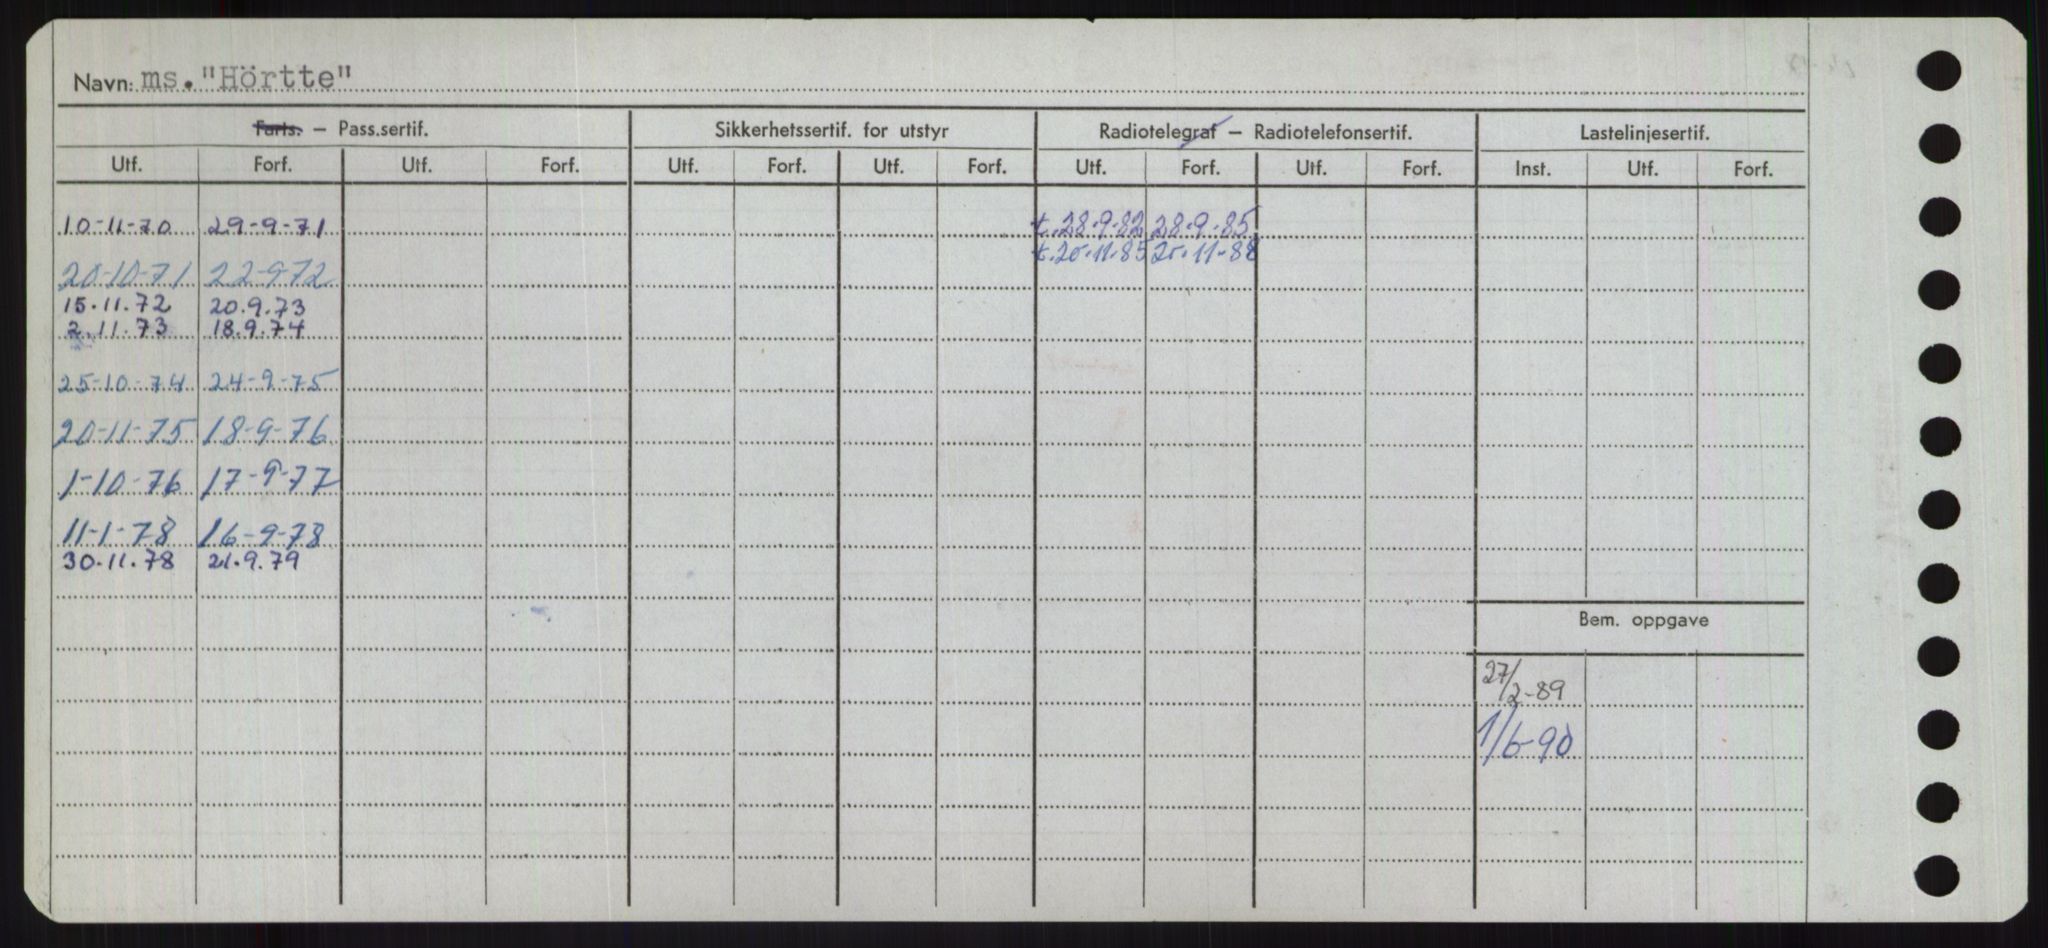 Navn: ms. "Hörtte"
Farts. – Pass.sertif. Sikkerhetssertif. for utstyr Radiotelegraf – Radiotelefonsertif. Lastelinjesertif.
Utf. Forf. Utf. Forf. Utf. Forf. Utf. Forf. Utf. Forf. Utf. Forf. Inst. Utf. Forf.
10-11-70 29-9-71 t.28.9.82 28.9.85
t.25.11.85 25.11.88
20-10-71 22-9-72
15.11.72 20.9.73
2.11.73 18.9.74
25-10-74 24-9-75
20-11-75 18-9-76
1-10-76 17-9-77
11-1-78 16-9-78
30.11.78 21.9.79
Bem. oppgave
27/2-89
1/6-90